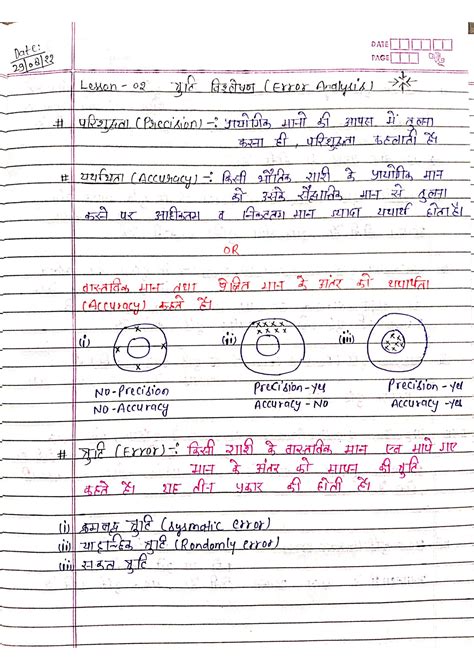 Date:
29/08/22
DATE
PAGE
Lesson - 02 त्रुटि विश्लेषण (Error Analysis)
# परिशुद्धता (Precision) -: प्रायोगिक मानो की आपस में तुलना
करना ही, परिशुद्धता कहलाती है।
# यथार्थता (Accuracy) -: किसी भौतिक राशी के प्रायोगिक मान
को उसके सैद्धांतिक मान से तुलना
करने पर अधिकतम व निकटतम मान ज्यादा यथार्थ होता है।
OR
वास्तविक मान तथा प्रेक्षित मान के अंतर को यथार्थता
(Accuracy) कहते है।
(i) (ii) (iii)
NO-Precision Precision-yes Precision-yes
NO-Accuracy Accuracy-NO Accuracy-yes
# त्रुटि (Error) -: किसी राशी के वास्तविक मान एवं मापे गए
मान के अंतर को मापन की त्रुटि
कहते है। यह तीन प्रकार की होती है।
(i) क्रमबद्ध त्रुटि (Sysmatic error)
(ii) यादृच्छिक त्रुटि (Randomly error)
(iii) सकल त्रुटि